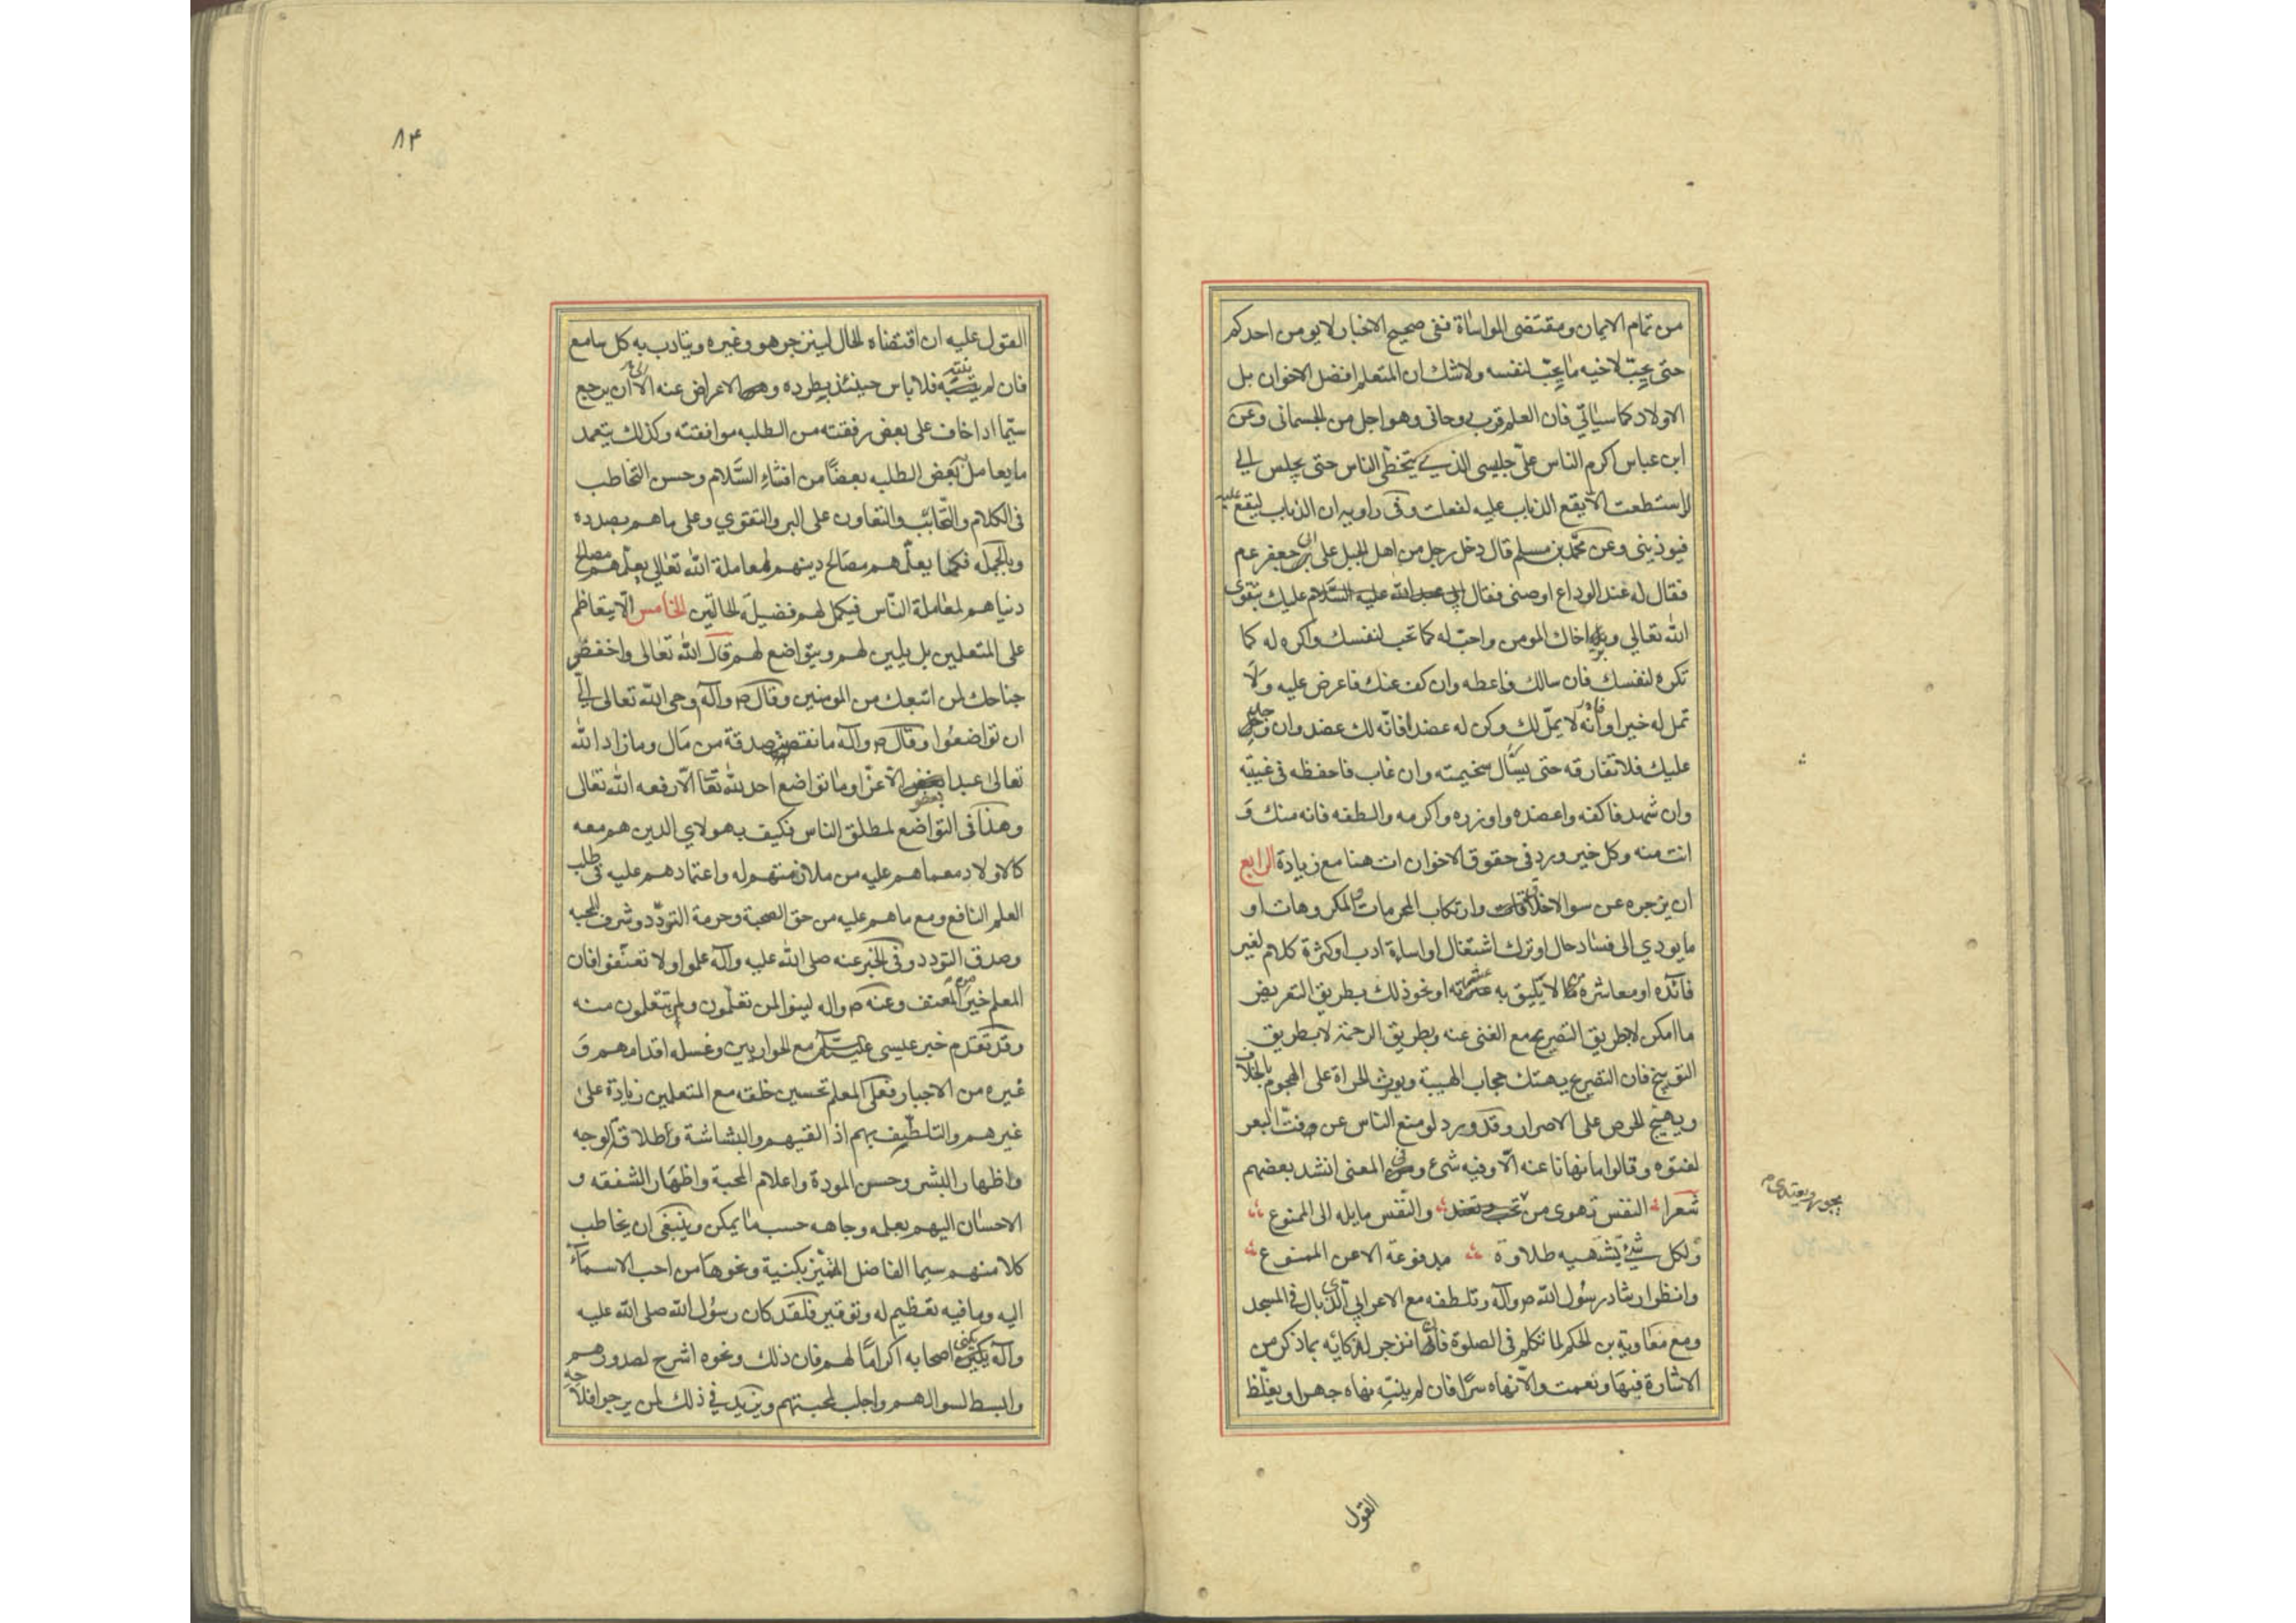 من تمام الايمان ومقتضى المواساة ففى صحيح الاخبار لايومن احدكم
حتى يحبّ لاخيه ما يحبّ لنفسه ولاشك ان المتعلم افضل الاخوان بل
الاولاد كما سياتي فان العلم قرب روحانى وهو اجل من الجسمانى وعن
ابن عباس اكرم الناس علىّ جليسى الذى يتخطّى الناس حتى يجلس الي
لو استطعت الا يقع الذباب عليه لفعلت وفى راويه ان الذباب ليقع عليه
فيوذينى وعن محمّد بن مسلم قال دخل رجل من اهل الجبل على ابى جعفر عم
فقال له عند الوداع اوصنى فقال عليك بتقوى
الله تعالي وبر اخاك المومن واحبّ له كما تحب لنفسك واكره له كما
تكره لنفسك فان سالك فاعطه وان كف عنك فاعرض عليه ولا
تمل له خيرا وانّه لا يملّ لك وكن له عضدا فانّه لك عضد وان وجد
عليك فلا تفارقه حتى يسّال سخيمته وان غاب فاحفظه فى غيبته
وان شهد فاكفه واعضده واوزره واكرمه والطفه فانه منك و
انت منه وكل خير ورد فى حقوق الاخوان ات هنا مع زيادة الرابع
ان يزجره عن سو الاخلاق وارتكاب المحرمات والمكروهات او
مايودي الى فساد حال او ترك اشتغال او اساءة ادب او كثرة كلام لغير
فائده او معاشرة من لا يليق به عشرته او نحو ذلك بطريق التعريض
ما امكن لابطريق التصريح مع الغنى عنه وبطريق الرحمة لا بطريق
التوبيخ فان التصريح يهتك حجاب الهيبة ويورث الجراة على الهجوم بالخلاف
ويهيّج الحرص على الاصرار وقد ورد لو منع الناس عن فتّ البعر
لفتوه وقالوا ما نهانا عنه الّا وفيه شئ وفى المعنى انشد بعضهم
شعرا النفس تهوى من والنّفس مايله الى الممنوع
ولكل شئ تشتهيه طلاوة مدفوعة الا عن الممنوع
وانظر ارشاد رسُول الله ص وآله وتلطفه مع الاعرابي الذى بال فى المسجد
ومع معَاوية بن الحكم لما تكلم فى الصلوة فان انزجر لذكائه بما ذكر من
الاشارة فبهَا ونعمت والّا نهاه سرًّا فان لم ينتِه نهاه جهرا ويغلّظ
القول
يجور ويعتدى م
٨٤
القول عليه ان اقتضاه الحال لينزجر هو وغيره ويتادب به كل سامع
فان لم ينته فلا باس حينئذ بطرده والاعراض عنه الى ان يرجع
سيّما اذا خاف على بعض رفقته من الطلبه موافقته وكذلك يتعمد
مايعامل به بعض الطلبه بعضًا من افشاءِ السَّلام وحسن التخاطب
فى الكلام والتحابّب والتعاون على البر والتقوي وعلى ماهم بصدده
وبالجمله فكما يعلّمهم مصَالح دينهم لمعاملة الله تعَالي يعلّمهم مصالح
دنياهم لمعَاملة النّاس فيكمل لهم فضيلة الحالتين الخامس الّا يتعاظم
على المتعلمين بل يلين لهم ويتواضع لهم قال الله تعَالى واخفض
جناحك لمن اتبعك من المومنين وقال ص وآله وحى الله تعالى اليّ
ان تواضعُوا وقال ص وآله ما نقصت صدقة من مَال وما زاد الله
تعالى عبدا بعفو الّا عزّا وما تواضع احد لله تعَا الّا رفعه الله تعَالى
وهذا فى التواضع لمطلق الناس فكيف بهولاي الدين هم معه
كالاولاد مع ماهم عليه من ملازمتهم له واعتمادهم عليه فى طلب
العلم النافع ومع ماهم عليه من حق الصحبة وحرمة التودّد وشرف المحبه
وصدق التودد وفى الخبر عنه صلى الله عليه وآله علموا ولا تعنّفوا فان
المعلم خير من المعنف وعنه ص واله لينوا لمن تعلّمون ولمن تتعلمون منه
وقد تقدم خبر عيسى عليه السلام مع الحواريين وغسله اقدامهم و
غيره من الاخبار فعلى المعلم تحسين خلقه مع المتعلمين زيادة على
غيرهم والتلطّيف بهم اذ القيهم والبشاشة وطلاقة الوجه
واظهار البشر وحسن المودة واعلام المحبة واظهَار الشفقه و
الاحسَان اليهم بعلمه وجاهه حسب ما يمكن وينبغى ان يخاطب
كلا منهم سيما الفاضل المتميّز بكنية ونحوهَا من احب الاسمآء
اليه وما فيه تعظيم له وتوقير فلقد كان رسُول الله صلى الله عليه
وآله يكنى اصحابه اكرامًا لهم فان ذلك ونحوه اشرح لصدورهم
وابسط لسوالهم واجلب لمحبتهم ويزيد في ذلك لمن يرجوا فلاحه